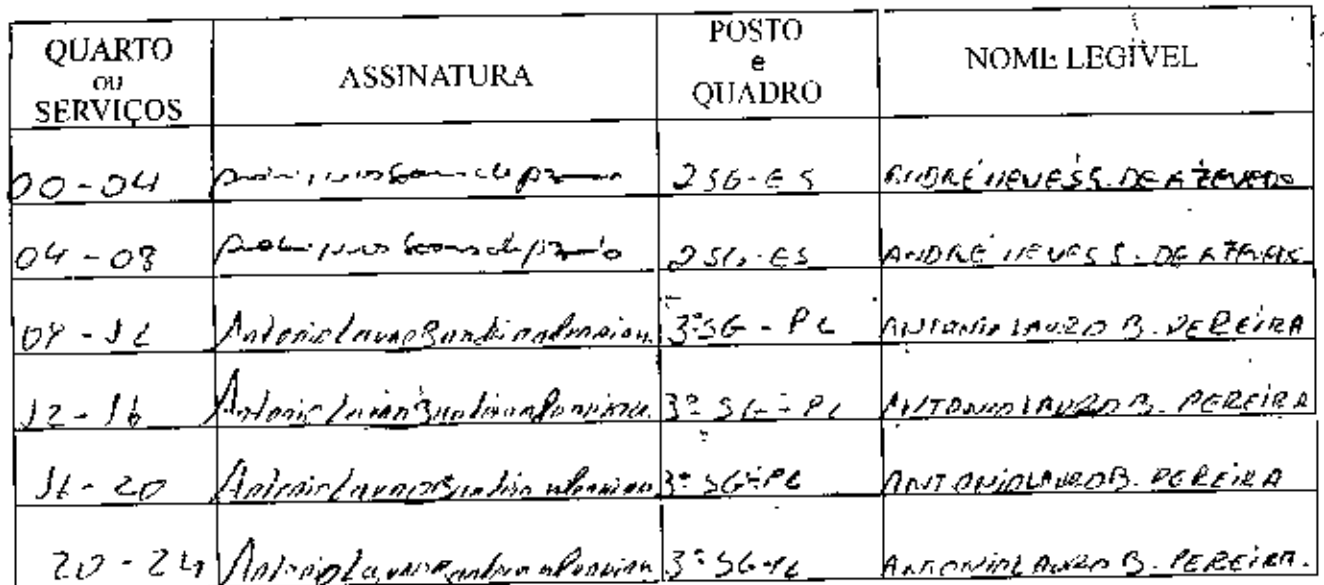 QUARTO
OU
SERVIÇOS
ASSINATURA
POSTO
e
QUADRO
NOME LEGÍVEL
00-04 2SG-ES ANDRÉ NEVES S. DE AZEVEDO
04-08 2SG-ES ANDRÉ NEVES S. DE
08-12 Antonio Lauro Pereira 3º SG-PL ANTONIO LAURO B. PEREIRA
12-16 Antonio Lauro Pereira 3º SG-PL ANTONIO LAURO B. PEREIRA
16-20 Antonio Lauro Pereira 3º SG-PL ANTONIO LAURO B. PEREIRA
20-24 Antonio Lauro Pereira 3º SG-PL ANTONIO LAURO B. PEREIRA.